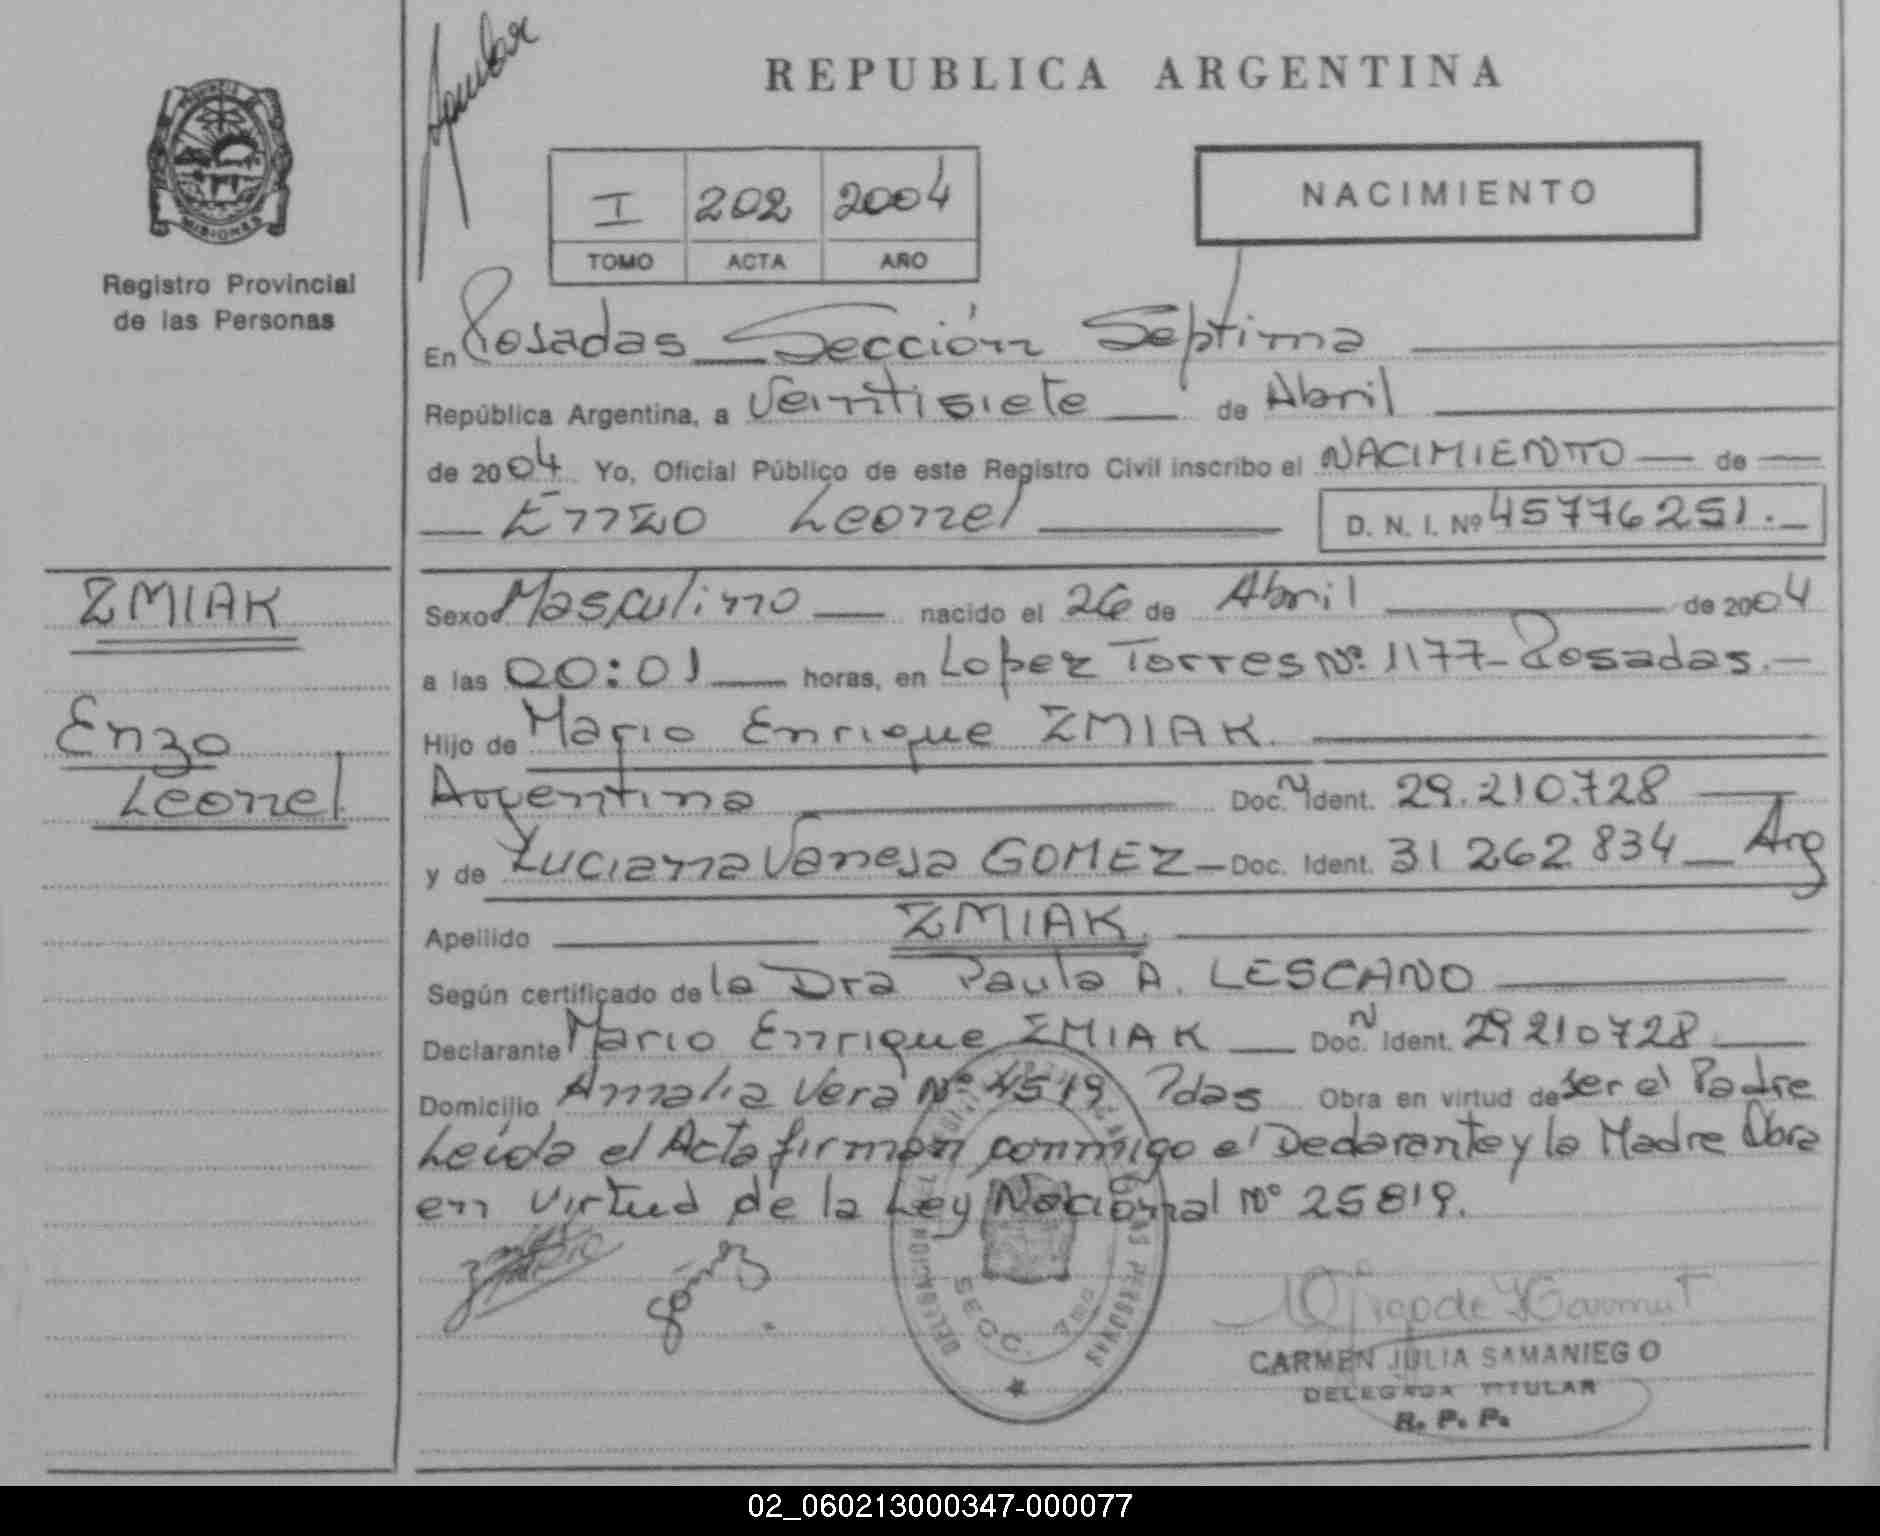 REPUBLICA ARGENTINA
MISIONES
Registro Provincial
de las Personas
I 202 2004
TOMO ACTA AÑO
NACIMIENTO
En Posadas Sección Septima
República Argentina, a Veintisiete de Abril
de 2004 Yo, Oficial Público de este Registro Civil inscribo el NACIMIENTO de
Enzo Leonel D. N. I. Nº 45776251.
ZMIAK
Enzo
Leonel
Sexo Masculino nacido el 26 de Abril de 2004
a las 00:01 horas, en Lopez Torres Nº 1177- Posadas.
Hijo de Mario Enrique ZMIAK.
Argentina Doc. N Ident. 29.210.728
y de Luciana Vanesa GOMEZ - Doc. Ident. 31 262 834 Arg
Apellido ZMIAK.
Según certificado de la Dra Paula A. LESCANO
Declarante Mario Enrique ZMIAK Doc. N Ident. 29 210 728
Domicilio Amalia Vera Nº 4519 Pdas Obra en virtud de ser el Padre
Leida el Acta firman conmigo el Declarante y la Madre Obra
en virtud de la Ley Nacional Nº 25819.
CARMEN JULIA SAMANIEGO
DELEGADA TITULAR
R. P. P.
02_060213000347-000077